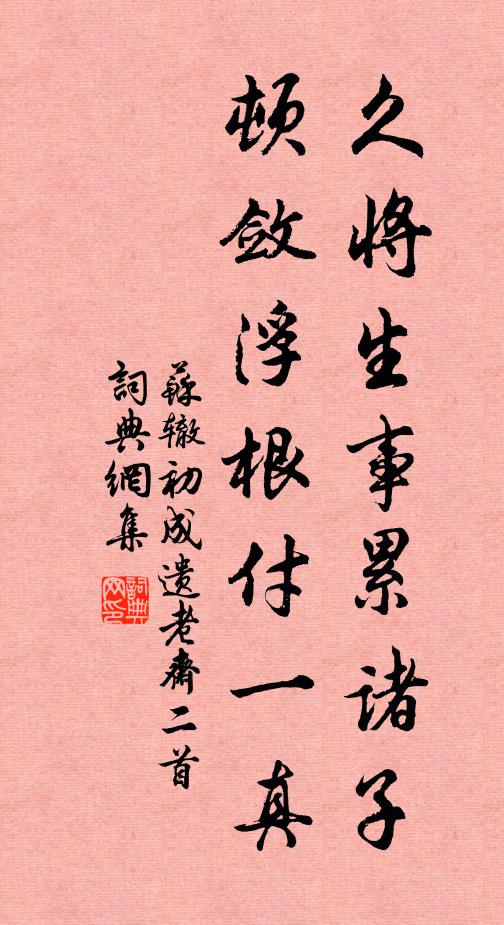 久將生事累諸子
頓斂浮根付一真
蘇轍初成遺老齋二首
詞典網集
詞典網印